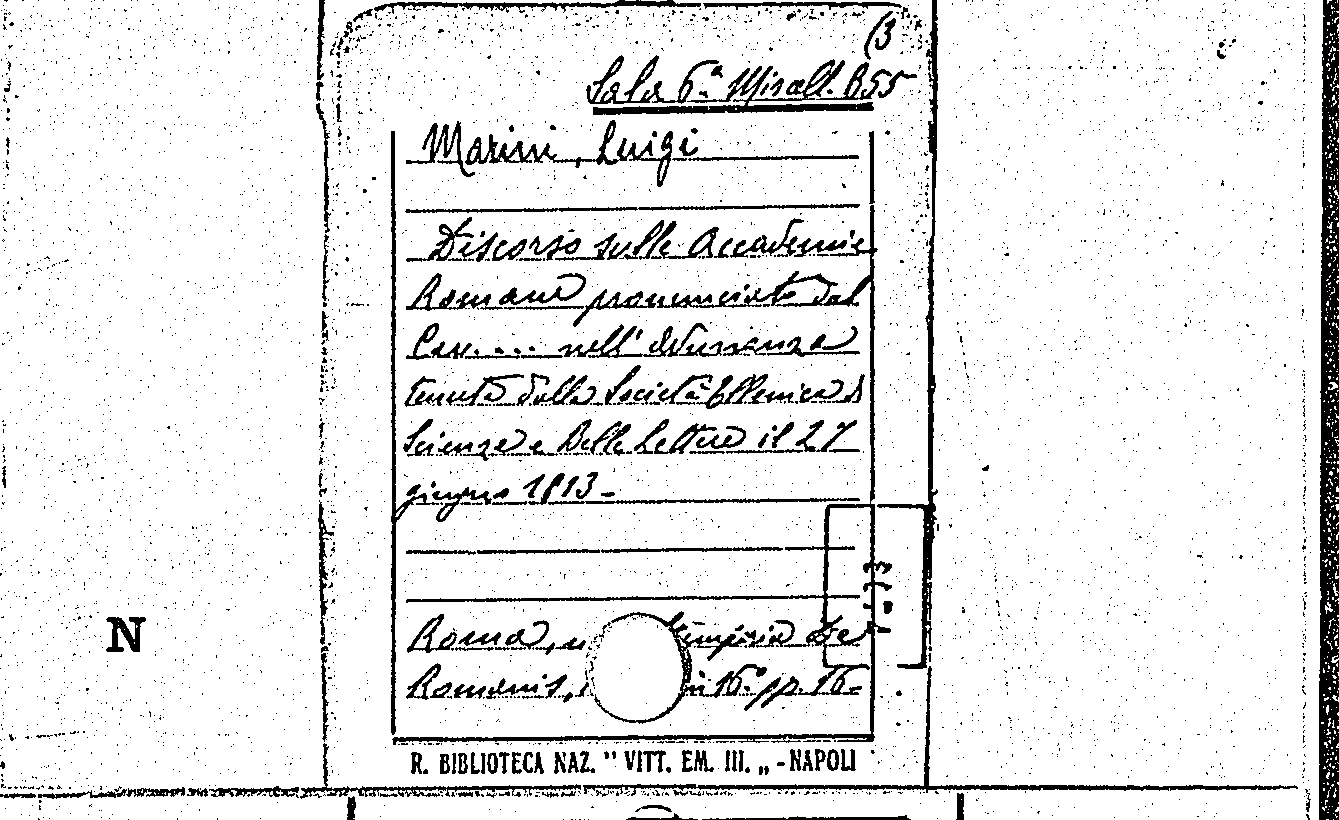 (3
Sala 6.ª Miscell. B55
Marini, Luigi
Discorso sulle Accademie
Romane pronunciato dal
Cav. ... nell' adunanza
tenuta dalla Società Ellenica di
Scienze e Belle Lettere il 27
giugno 1813 -
Roma, De
Romanis, in 16.º pp. 16 -
N
R. BIBLIOTECA NAZ. " VITT. EM. III. „ - NAPOLI